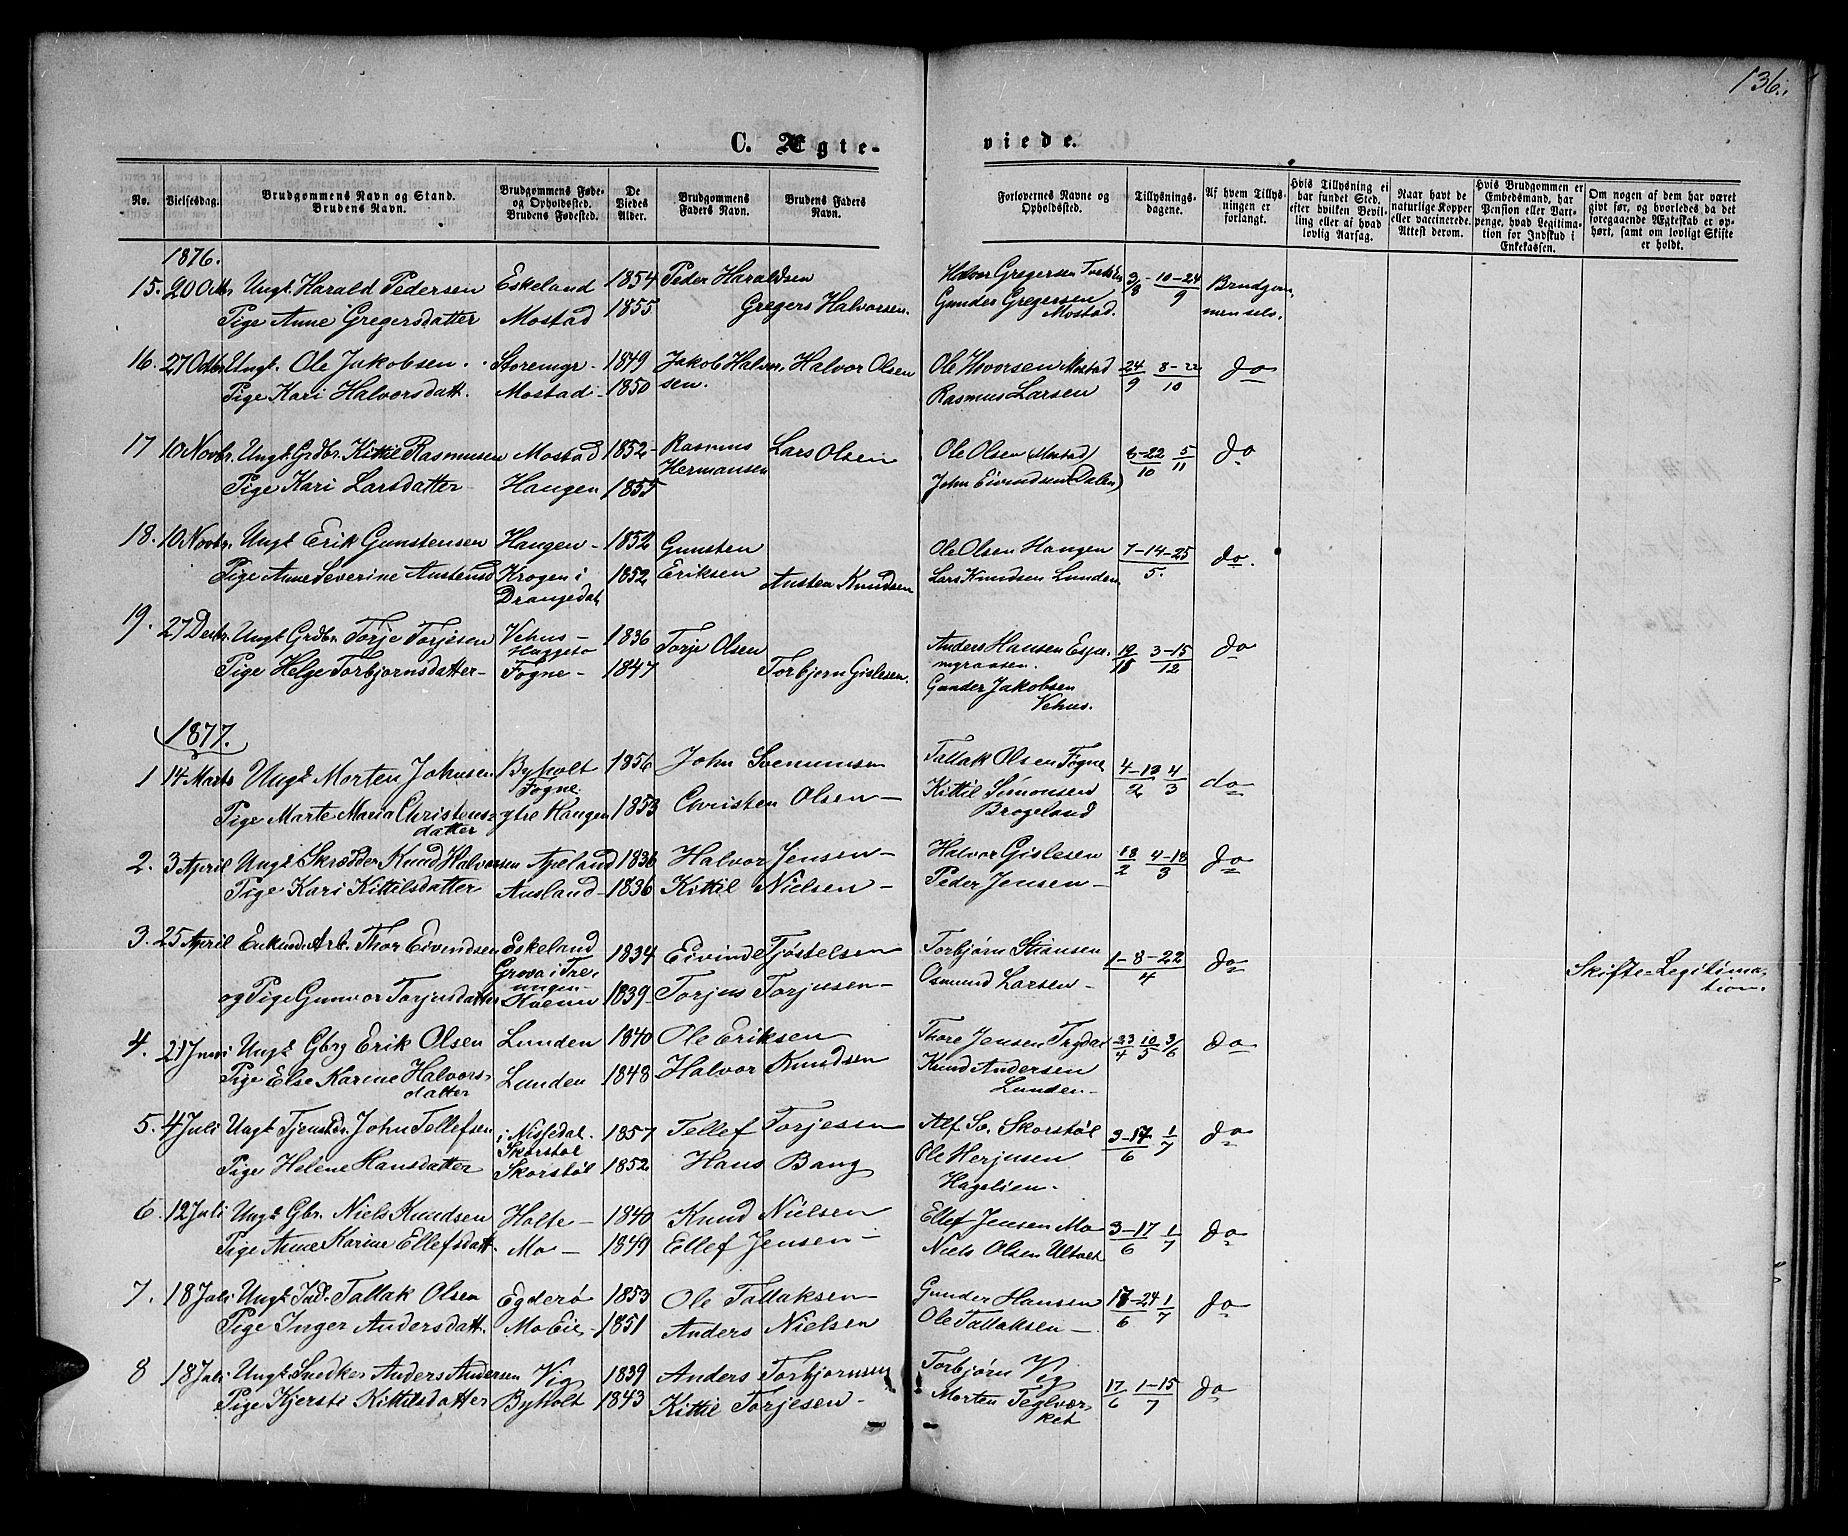 136.
C. Ægte-
viede.
No. Vielsesdag. Brudgommens Navn og Stand. Brudens Navn. Brudgommens Føde- og Opholdssted. Brudens Fødested. De Viedes Alder. Brudgommens Faders Navn. Brudens Faders Navn. Forlovernes Navne og Opholdssted. Tillysnings-dagene. Af hvem Tillysningen er forlangt. Hvis Tillysning ei har fundet Sted, efter hvilken Bevilling eller af hvad lovlig Aarsag. Naar havt de naturlige Kopper eller vaccinerede. Attest derom. Hvis Brudgommen er Embedsmand, har Pension eller Vartpenge, hvad Legitimation for Indskud i Enkekassen. Om nogen af dem har været gift før, og hvorledes da det foregaaende Ægteskab er ophørt, samt om lovligt Skifte er holdt.
1876.
15. 20 Octbr Ungk. Harald Pedersen Eskeland 1854 Peder Haraldsen Halvor Gregersen 3/9 10-24/9 Brudgom-
Pige Anne Gregersdatter Mostad 1855 Gregers Halvorsen. Gunder Gregersen Mostad. men selv.
16. 27 Octbr Ungk. Ole Jakobsen. Storemyr 1849 Jakob Halvor- Halvor Olsen Ole Hvorsen Mostad 24/9 8-22/10 do
Pige Kari Halvorsdatt. Mostad 1850 sen. Rasmus Larsen
17 10 Novbr. Ungk. Grdbr. Kittil Rasmusen Mostad 1852 Rasmus Lars Olsen Ole Olsen (Mostad) 8-22/10 5/11 do
Hermansen
Pige Kari Larsdatter Haugen 1855 John Eivendsen (Dalen)
18. 10 Novbr. Ungk Erik Gunstensen Haugen 1852 Gunsten Ole Olsen Haugen 7-14-25/5. do.
Pige Anne Severine Austensd Krogen i 1852 Eriksen Austen Knudsen Lars Knudsen Lunden
Drangedal
19. 27 Decbr. Ungk Grdbr. Torje Torjesen Vehus- 1836 Torje Olsen Anders Hansen Espe- 19/11 3-15/12 do
Haggeto myraasen.
Pige Helge Torbjornsdatter Fogne 1847 Torbjorn Gislesen. Gunder Jakobsen
Vehus.
1877.
1 14 Marts Ungk. Morten Johnsen Byholt 1856 John Svenumsen Tallak Olsen Fogne 4-18/2 4/3 do
Fogne
Pige Marte Maria Christens- ytre Haugen 1853 Christen Olsen Kittil Simonsen
datter Brogeland
2. 3 April Ungk. Skrædder Knud Halvorsen Apeland 1836 Halvor Jensen Halvor Gislesen 18/2 4-18/3 do
Pige Kari Kittilsdatter Ausland 1836 Kittil Nielsen Peder Jensen
3. 25 April Enkemd. Arb. Thor Eivendsen Eskeland 1834 Eivinde Tjøstelsen Torbjørn Stiansen 1-8-22/4 do Skifte-Legitima-
tion.
Grova i Tre-
ungen
og Pige Gunvor Torjusdatter 1839 Torjus Torjusen Osmund Larsen
4. 21 Juni Ungk Gbrg Erik Olsen Lunden 1840 Ole Eriksen Thore Jensen Trydal 23/4 10/5 3/6 do
Pige Else Karine Halvors- Lunden 1848 Halvor Knudsen Knud Andersen
datter Lunden
5. 4 Juli Ungk Tjenstdr. John Tellefsen i Nissedal. 1857 Tellef Torjesen Alf So. Skorstøl 3-17/6 1/7 do
Skorstøl
Pige Helene Hansdatter Skorstøl 1852 Hans Bang Ole Herjusen
Hagelien.
6. 12 Juli Ungk Gbr. Niels Knudsen Holte 1840 Knud Nielsen Ellef Jensen Mo 3-17/6 1/7 do
Pige Anne Karine Ellefsdatt. Mo 1849 Ellef Jensen Niels Olsen Ulveet
7. 18 Juli Ungk. Ind. Tallak Olsen Egderø 1853 Ole Tallaksen Gunder Hansen 17-24/6 1/7 do
Pige Inger Andersdatt. Mo Eie 1851 Anders Nielsen Ole Tallaksen
8 18 Juli Ungk. Snedker Anders Andersen Vig 1839 Anders Torbjornsen Torbjørn Vig 17/6 1-15/7 do
Pige Kjersti Kittilsdatter Byholt 1843 Kittil Torjesen Morten Teglvær-
ket